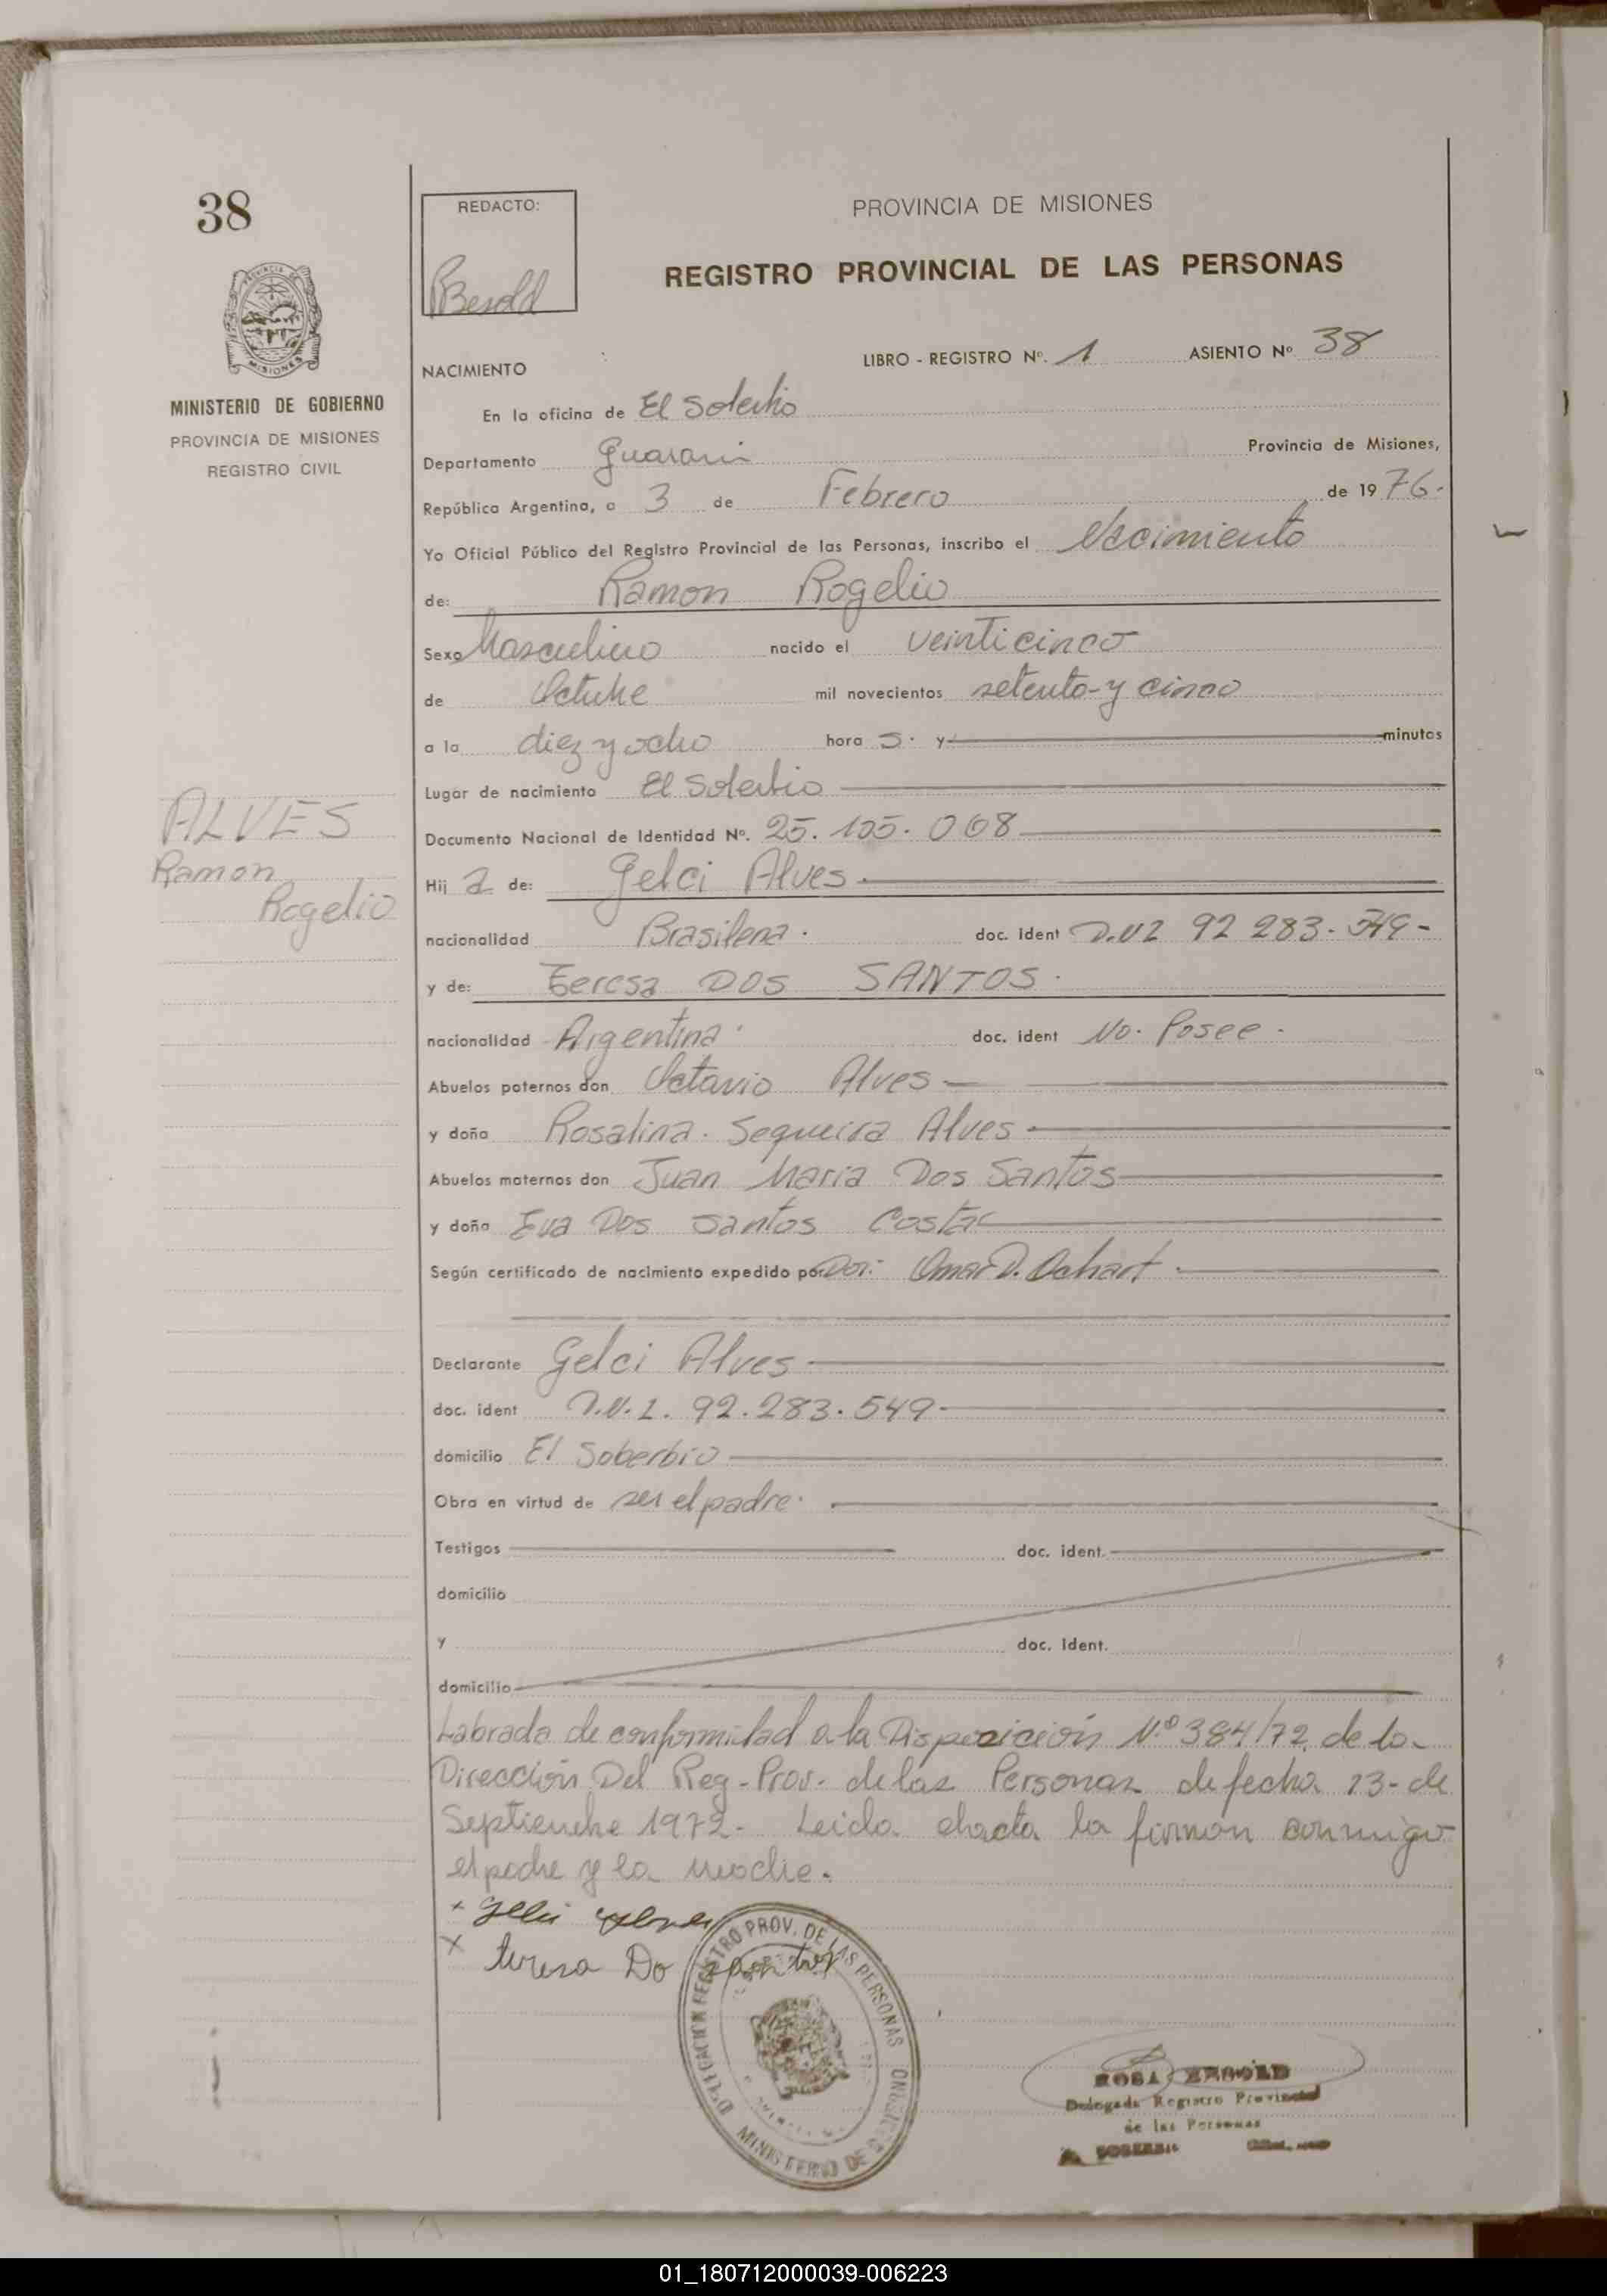 38
REDACTO:
Besold
PROVINCIA DE MISIONES
REGISTRO PROVINCIAL DE LAS PERSONAS
PROVINCIA DE MISIONES
MINISTERIO DE GOBIERNO
PROVINCIA DE MISIONES
REGISTRO CIVIL
NACIMIENTO
LIBRO - REGISTRO Nº. 1 ASIENTO Nº 38
En la oficina de El Soberbio
Departamento Guarani Provincia de Misiones,
República Argentina, a 3 de Febrero de 1976-
Yo Oficial Público del Registro Provincial de las Personas, inscribo el Nacimiento
de: Ramon Rogelio
Sexo Masculino nacido el veinticinco
de Octubre mil novecientos setenta y cinco
a la diez y ocho hora s. y minutos
Lugar de nacimiento El Soberbio
ALVES
Ramon
Rogelio
Documento Nacional de Identidad Nº. 25.105.008
Hij o de: Gelci Alves
nacionalidad Brasilena. doc. ident D.N.I 92 283.549-
y de: Teresa DOS SANTOS.
nacionalidad Argentina. doc. ident No. Posee.
Abuelos paternos don Octavio Alves
y doña Rosalina. Sequeira Alves
Abuelos maternos don Juan Maria Dos Santos
y doña Eva Dos Santos Costa
Según certificado de nacimiento expedido por Dor: Omar D. Ochart.
Declarante Gelci Alves
doc. ident D.N.I. 92.283.549-
domicilio El Soberbio
Obra en virtud de ser el padre.
Testigos doc. ident.
domicilio
y doc. Ident.
domicilio
Labrada de conformidad a la Disposición N.º 384/72 de la
Dirección Del Reg-Prov. de las Personas de fecha 13-de
Septiembre 1972- Leida el acta la firman conmigo
el padre y la madre.
x Gelci Alves
x teresa Do santos
DELEGACION REGISTRO PROV. DE LAS PERSONAS
MINISTERIO DE GOBIERNO
ROSA BESOLD
Delegada Registro Provincial
de las Personas
SOBERBIO
01_180712000039-006223